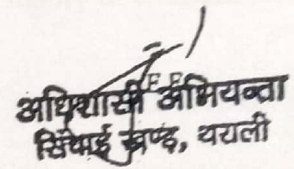 अधिशासी अभियन्ता
सिंचाई खण्ड, थराली